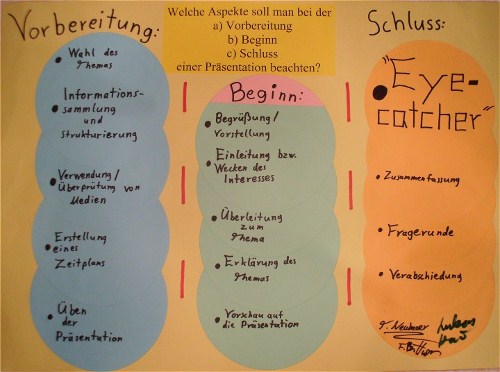 Welche Aspekte soll man bei der
a) Vorbereitung
b) Beginn
c) Schluss
einer Präsentation beachten?
Vorbereitung:
• Wahl des
Themas
• Informations-
sammlung
und
Strukturierung
• Verwendung/
Überprüfung von
Medien
• Erstellung
eines
Zeitplans
• Üben
der
Präsentation
Beginn:
• Begrüßung/
Vorstellung
• Einleitung bzw.
Wecken des
Interesses
• Überleitung
zum
Thema
• Erklärung des
Themas
• Vorschau auf
die Präsentation
Schluss:
• "Eye-
catcher"
• Zusammenfassung
• Fragerunde
• Verabschiedung